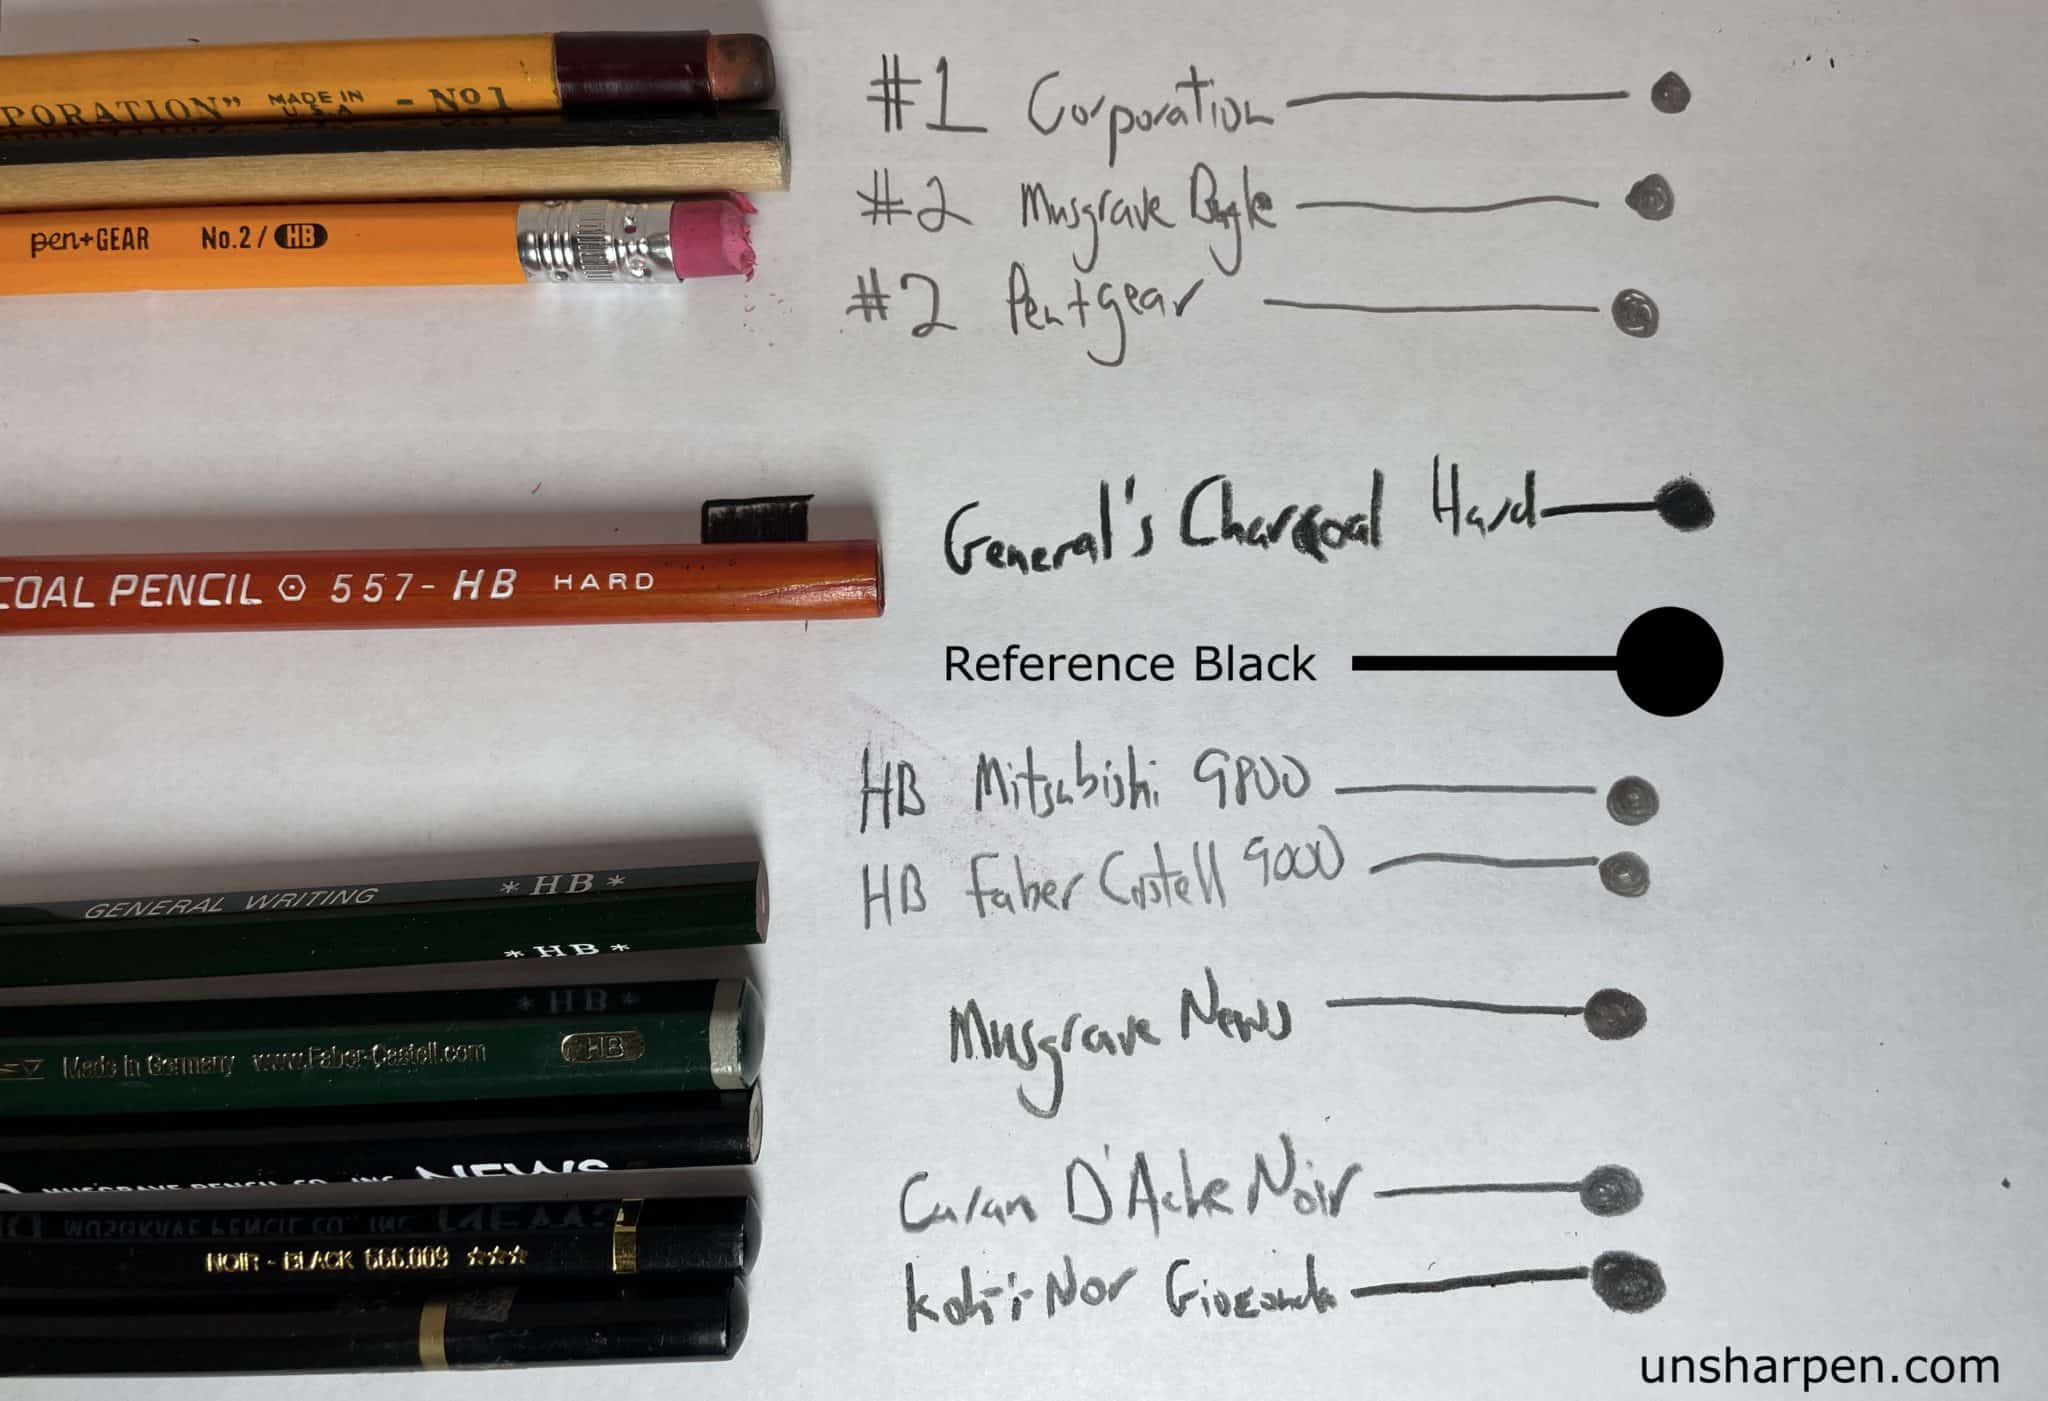 PORATION” MADE IN U.S.A - No 1
#1 Corporation
#2 Musgrave Bugle
pen+GEAR No.2/ HB
#2 Pen+gear
General's Charcoal Hard
COAL PENCIL 557-HB HARD
Reference Black
HB Mitsubishi 9800
HB Faber Castell 9000
GENERAL WRITING * HB *
* HB *
* HB *
Made in Germany www.Faber-Castell.com HB
Musgrave News
MUSGRAVE PENCIL CO., INC. NEWS
MUSGRAVE PENCIL CO., INC. NEWS
Caran D'Ache Noir
NOIR - BLACK 666.009
Koh-i-Nor Gioconda
unsharpen.com